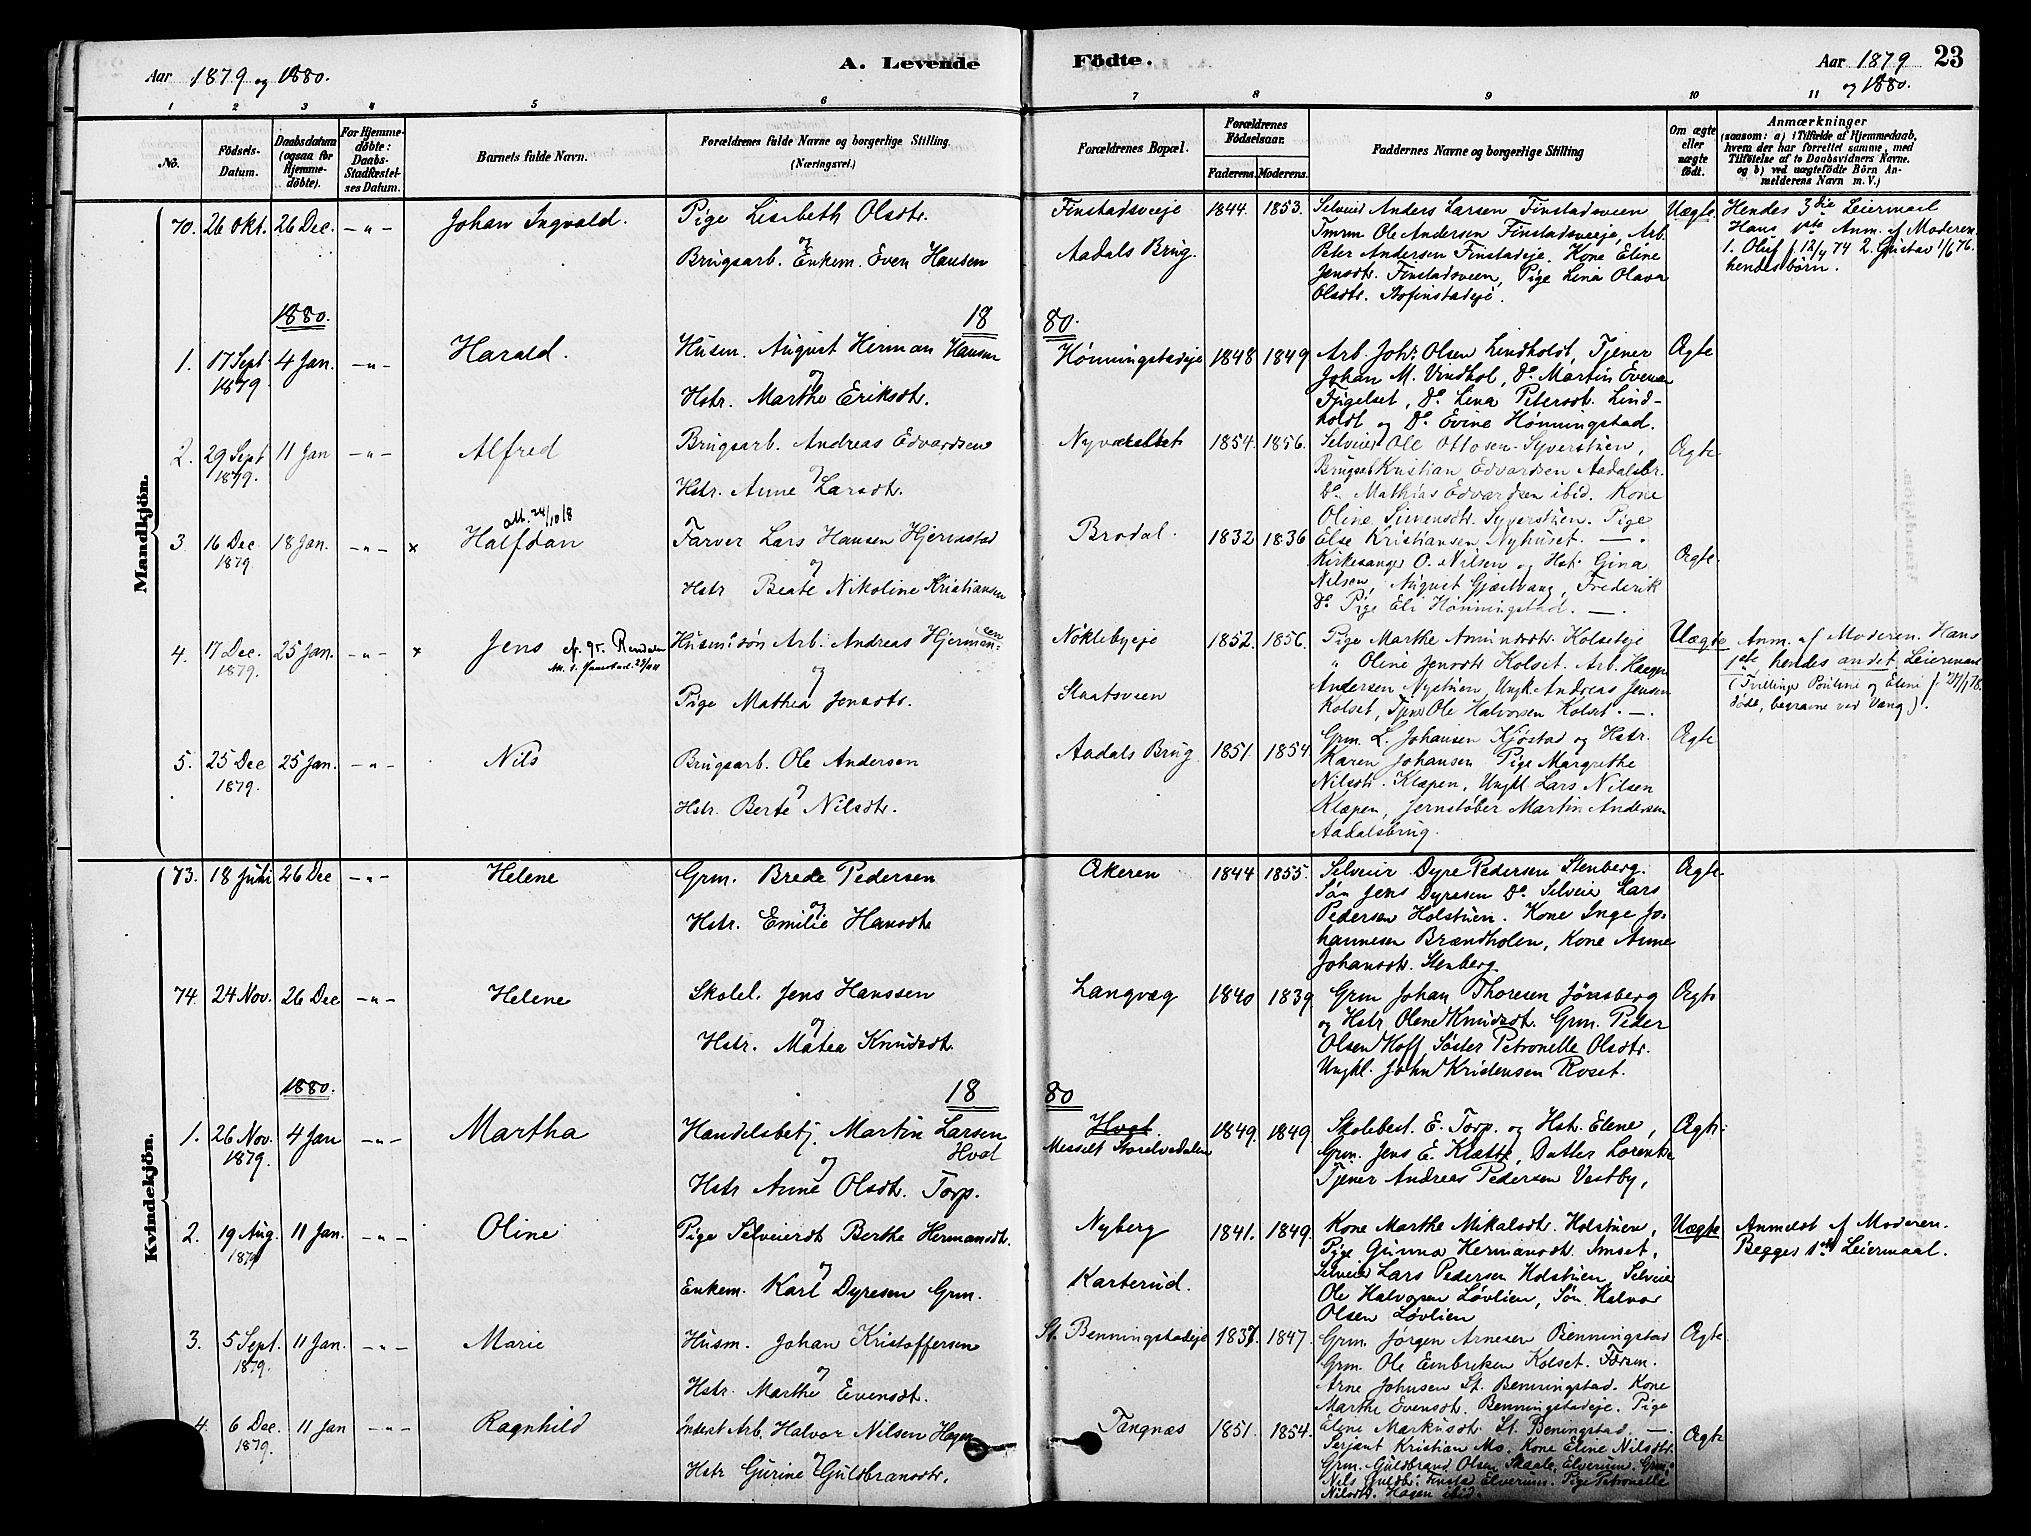 Aar 1879 og 1880.
A. Levende Födte.
Aar 1879 og 1880.
23
1 2 3 4 5 6 7 8 9 10 11
No.
Födsels-Datum.
Daabsdatum (ogsaa for Hjemmedöbte).
For Hjemmedöbte: Daabs-Stadfæstelses Datum.
Barnets fulde Navn.
Forældrenes fulde Navne og borgerlige Stilling. (Næringsvei.)
Forældrenes Bopæl.
Forældrenes Födselsaar.
Faderens. Moderens.
Faddernes Navne og borgerlige Stilling
Om ægte eller uægte födt.
Anmærkninger
(saasom: a) i Tilfælde af Hjemmedaab, hvem der har forrettet samme, med Tilföielse af to Daabsvidners Navne. og b) ved uægtefödte Börn Anmelderens Navn m. V.)
Mandkjön.
70. 26 Okt. 26 Dec. -"- Johan Ingvald.
Pige Lisbeth Olsdtr.
og
Brugsarb. Enkem. Even Hansen
Finstadsveeje
Aadals Brug.
1844. 1853.
Selveier Anders Larsen Finstadsveen
Tmrm Ole Andersen Finstadsveeje, Arb.
Peter Andersen Finstadeje. Kone Eline
Jensdtr. Finstadsveen, Pige Lina Olava
Olsdtr. Finstadeje.
Uægte
Hendes 3die Leiermaal
Hans 1ste Anm. af Moderen.
1. Oluf f 12/4 74 2. Gustav 1/6 76.
hendes børn.
1880.
18 80.
1. 17 Sept 1879. 4 Jan. -"- Harald.
Husm. August Herman Hansen
og
Hstr. Marthe Eriksdtr.
Hönningstadeje
1848 1849
Arb. Johs. Olsen Lindholdt, Tjener
Johan M. Vindhol, Do Martin Evensen
Fjigelset, Do Lena Petersdt. Lind-
holdt og Do Evine Hönningstad.
Ægte
2. 29 Sept 1879. 11 Jan -"- Alfred
Brugsarb. Andreas Edvardsen
og
Hstr. Anne Larsdtr.
Nyvæltet
1854. 1856.
Selveier Ole Ottosen Syverstuen,
Brugsarb Kristian Edvardsen Aadalsbr.
Do Mathias Edvardsen ibid. Kone
Oline Simensdtr. Syverstuen. Pige
Else Kristiansen Nyhuset. —.
Ægte
3. 16 Dec 1879. 18 Jan. -"- × Halfdan
att. 24/10 18
Farver Lars Hansen Hjermstad
og
Hstr Beate Nikoline Kristiansen
Brodal.
1832 1836
Kirkesanger O. Nilsen og Hst. Gina
Nilsen, August Gjæstvang, Frederik
Do Pige Eli Hönningstad. —.
Ægte.
4. 17 Dec. 1879. 25 Jan. -"- × Jens
Husm.sön Arb. Andreas Hjermansen
og
Pige Mathea Jensdtr.
Nöklebyeje
Staatsveen
1852. 1856.
Pige Marthe Amundsdtr. Kolseteje
" Oline Jensdtr Kolset. Arb. Haagen
Andersen Nystuen, Ungk. Andreas Jensen
Kolset, Tjener Ole Halvorsen Kolset. —.
Uægte
Anm. af Moderen. Hans
1ste, hendes andet Leiermaal
(Tvillinge Pouline og Eline f. 27/1 78.
döde, begravne ved Vang).
5. 25 Dec 1879. 25 Jan. -"- Nils
Brugsarb. Ole Andersen
og
Hstr. Berte Nilsdtr.
Aadals Brug
1851. 1854
Grm. L. Johansen Kjöstad og Hstr.
Karen Johansen Pige Margrethe
Nilsdtr. Klæpen, Ungkl. Lars Nilsen
Klæpen, Jernstöber Martin Andersen
Aadalsbrug.
Ægte
Kvindekjön.
73. 18 Juli 26 Dec -"- Helene
Grm. Brede Pedersen
og
Hstr. Emilie Hansdtr
Akeren
1844 1855.
Selveier Dyre Pedersen Stenberg.
Sön Jens Dyresen Do Selveier Lars
Pedersen Holstuen. Kone Inge Jo-
hannesen Brændholen, Kone Anne
Johansdtr. Stenberg
Ægte
74. 24 Nov. 26 Dec -"- Helene
Skolel. Jens Hanssen
og
Hstr. Matea Knudsdt.
Langvæg
1840 1839
Grm Johan Thoresen Jönsberg
og Hstr Olene Knudsdt. Grm. Peder
Olsen Hoff Söster Petronelle Olsdtr.
Ungkl. John Kristensen Roset.
Ægte
1880.
18 80
1. 26 Nov. 1879. 4 Jan -"- Martha
Handelsbetj. Martin Larsen
Hvat
og
Hstr Anne Olsdt. Torp.
Hvat.
Messelt Storelvedalen
1849. 1849
Skolebest. E. Torp. og Hst. Elene,
Grm. Jens E. Klæth, Datter Lorentse
Tjener Andreas Pedersen Vestby,
Ægte
2. 19 Aug. 1879 11 Jan. -"- Oline
Pige Selveierdt Berthe Hermansdt.
og
Enkem. Karl Dyresen Grm.
Nyberg
Karterud.
1841. 1849.
Kone Marthe Mikalsdtr. Holstuen,
Pige Gunna Hermansdt. Imset,
Selveier Lars Pedersen Holstuen, Selveier
Ole Halvorsen Lövlien, Sön Halvor
Olsen Lövlien
Uægte
Anmeldt af Moderen.
Begges 1ste Leiermaal.
3. 5 Sept. 1879. 11 Jan. -"- Marie
Husm. Johan Kristoffersen
og
Hstr. Marthe Evensdt.
St. Benningstadeje
1837. 1847.
Grm. Jörgen Arnesen Benningstad
Grm. Ole Embriksen Kolset.
Arne Johnsen St. Benningstad. Kone
Marthe Svensdt. Benningstadeje. Pige
Eline Markusdt. St. Benningstad. —.
Ægte
4. 6 Dec. 1879. 11 Jan -"- Ragnhild
Arb. Halvor Nilsen Hagen
og
Hstr Gurine Guldbransdtr.
Tangnæs
1851. 1854.
Serjant Kristian Mo. Kone Eline Nilsdtr.
Grm. Guldbrand Olsen Skaale, Elverum. Grm.
Nils Guldbr. Finstad Elverum. Pige Petronelle
Nilsdtr. Hagen ibid.
Ægte